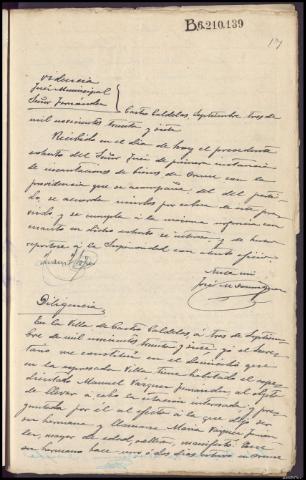 B6.210.139
Providencia
Juez Municipal
Señor Fernández
Castro Caldelas Septiembre tres de
mil novecientos treinta y siete
Recibido en el día de hoy el precedente
exhorto del Señor Juez de primera instancia
de incautaciones de bienes de Orense con la
providencia que se acompaña, del
se acuerda
y se cumpla a la misma urgencia con
cuanto en dicho exhorto se interesa, y se
a la Superioridad con atento oficio
Ante mi
José
Diligencia
En la Villa de Castro Caldelas á tres de Septiem-
bre de mil novecientos treinta y siete; yo el Secre-
tario me constituí en el domicilio que
en la expresada Villa tiene habitado el expe-
dientado Manuel Vazquez Fernández, al objeto
de llevar a cabo la citación interesada, y pre-
guntada por él al efecto á la que dijo ser
su hermana y llamarse María Vazquez Fernán-
dez, mayor de edad, soltera, manifestó: Que
su hermano hace uno ó dos días estuvo en Orense